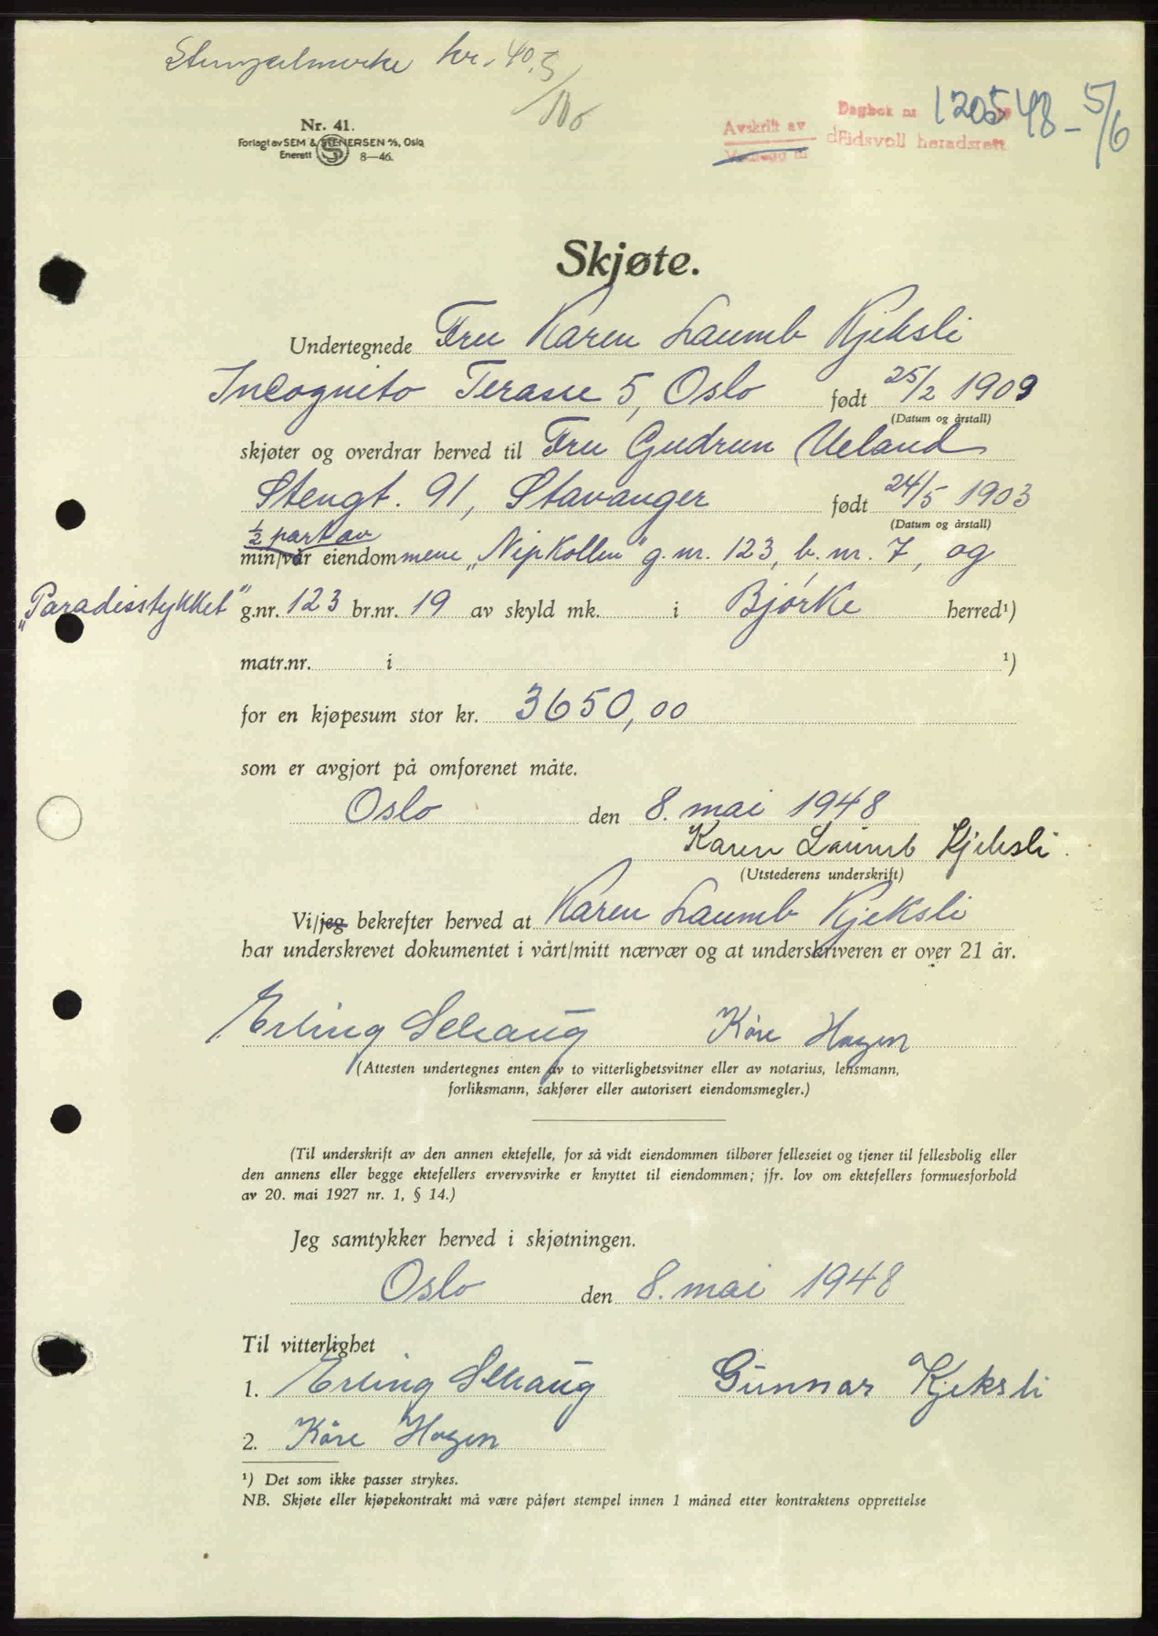 Stempelmerke kr. 40.5/100
Dagbok nr 1205 48 - 5/6
Avskrift av
Eidsvoll heradsrett
Nr. 41.
Forlagt av SEM & STENERSEN A/S, Oslo
Enerett 8—46.
Skjøte.
Undertegnede Fru Karen Laumb Kjeksli
Incognito Terasse 5, Oslo født 25/2 1909
(Datum og årstall)
skjøter og overdrar herved til Fru Gudrun Ueland
Stengt. 91, Stavanger født 24/5 1903
(Datum og årstall)
1/2 part av
min/vår eiendommene „Nipkollen" g.nr. 123, b.nr. 7, og
„Paradisstykket" g.nr. 123 br.nr. 19 av skyld mk. i Bjørke herred¹)
matr.nr. i ¹)
for en kjøpesum stor kr. 3650,00
som er avgjort på omforenet måte.
Oslo den 8. mai 1948
Karen Laumb Kjeksli.
(Utstederens underskrift)
Vi/jeg bekrefter herved at Karen Laumb Kjeksli
har underskrevet dokumentet i vårt/mitt nærvær og at underskriveren er over 21 år.
Erling Schaug Kåre Hagen
(Attesten undertegnes enten av to vitterlighetsvitner eller av notarius, lensmann,
forliksmann, sakfører eller autorisert eiendomsmegler.)
(Til underskrift av den annen ektefelle, for så vidt eiendommen tilhører felleseiet og tjener til fellesbolig eller
den annens eller begge ektefellers ervervsvirke er knyttet til eiendommen; jfr. lov om ektefellers formuesforhold
av 20. mai 1927 nr. 1, § 14.)
Jeg samtykker herved i skjøtningen.
Oslo den 8. mai 1948
Til vitterlighet
1. Erling Schaug Gunnar Kjeksli
2. Kåre Hagen
¹) Det som ikke passer strykes.
NB. Skjøte eller kjøpekontrakt må være påført stempel innen 1 måned etter kontraktens opprettelse